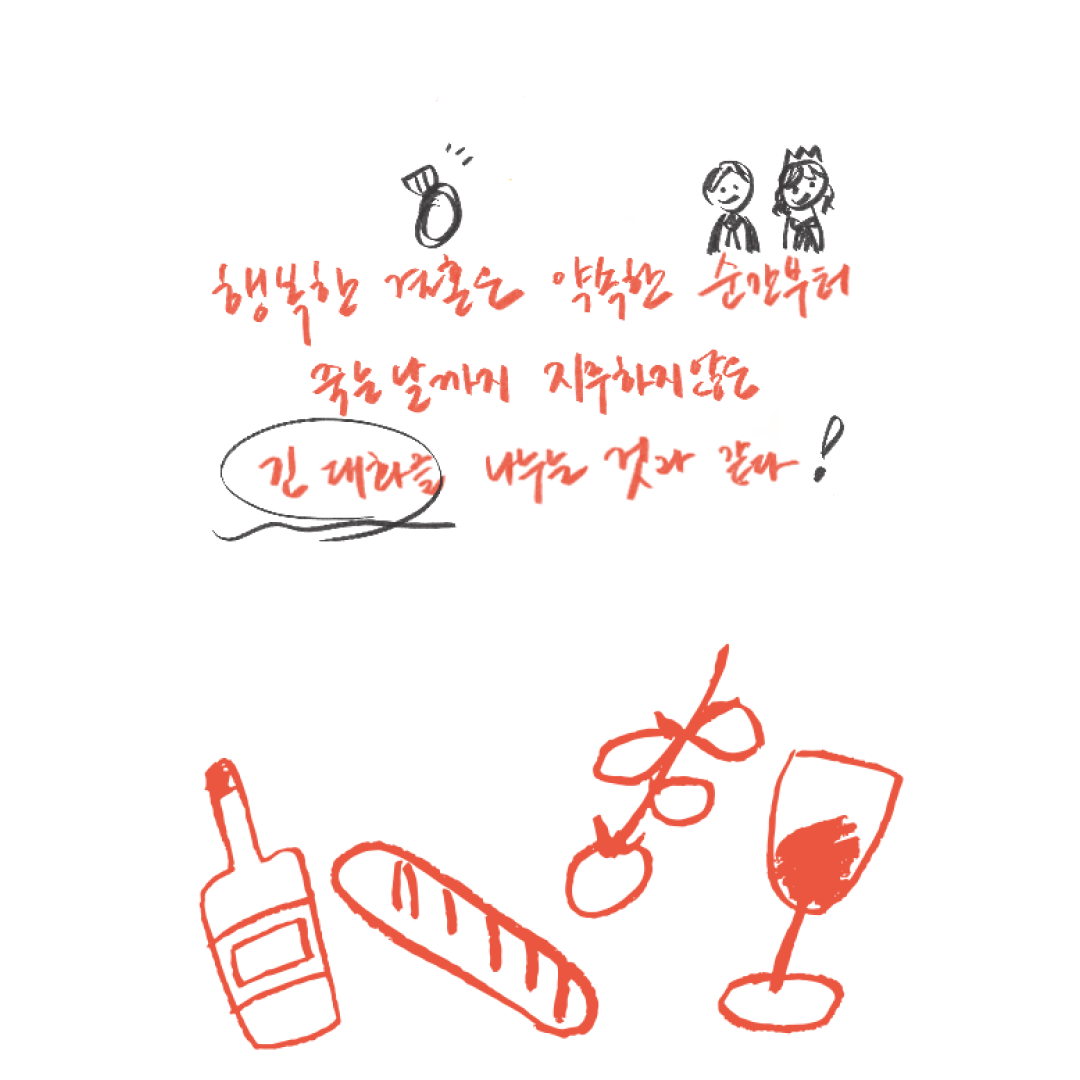 행복한 결혼은 약속한 순간부터
죽는날까지 지루하지않은
긴 대화를 나누는 것과 같다!